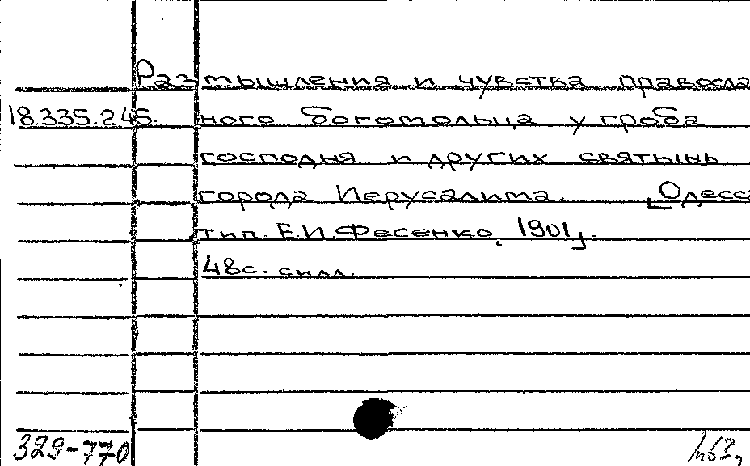 Размышления и чувства правосла
18.335.245. ного богомольца у гроба
господня и других святынь
города Иерусалима. [Одесс
тип. Е.И.Фесенко, 1901].
48с. силл.
329-770